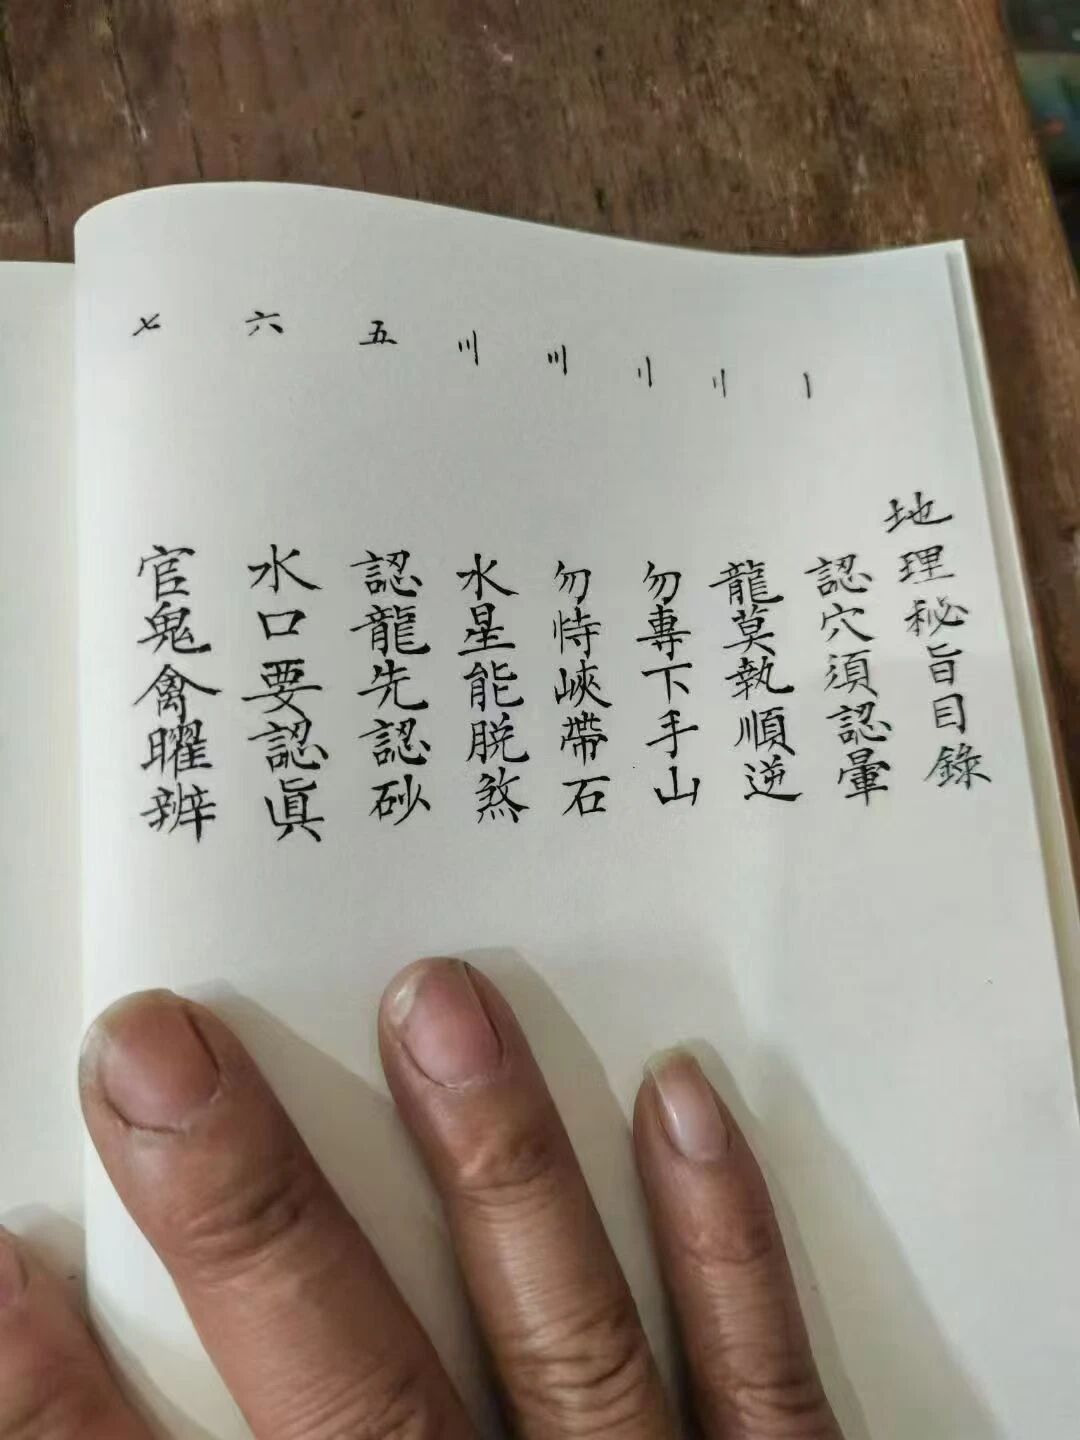 地理秘旨目錄
〡 認穴須認暈
〢 龍莫執順逆
〢 勿專下手山
〣 勿恃峽帶石
〣 水星能脱煞
五 認龍先認砂
六 水口要認眞
〤 官鬼禽曜辨